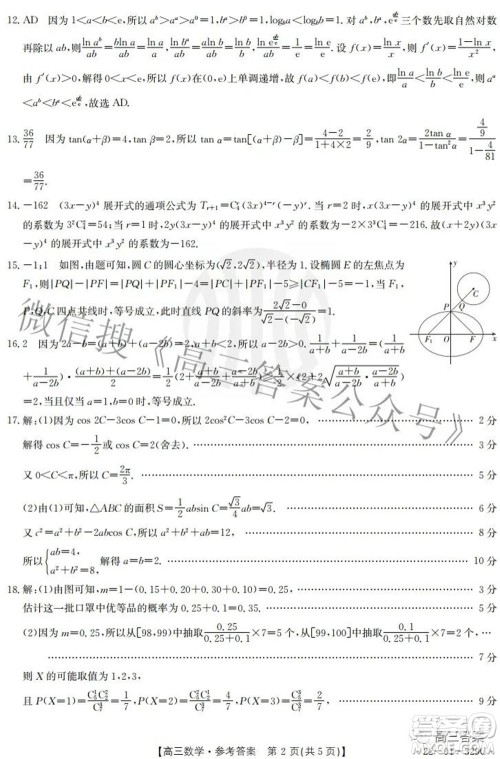 12. AD 因为 1<a<b<e,所以 aᵇ>aᵃ>a⁰=1,bᵃ>b⁰=1,log_b a<log_b b=1. 对 aᵇ,bᵃ, 三个数先取自然对数
再除以 ab,则 ln aᵇ/ab = bln a/ab = ln a/a, ln bᵃ/ab = aln b/ab = ln b/b, =1/e= ln e/e. 设 f(x)= ln x/x,则 f′(x)= (1-ln x)/x²,
由 f′(x)>0,解得 0<x<e,所以 f(x)在(0,e)上单调递增,故 f(a)<f(b)<f(e),即 ln a/a < ln b/b < ln e/e,则 aᵃ
<aᵇ<bᵃ< ,故选 AD.
13. 36/77 因为 tan(α+β)=4,tan β=2,所以 tan α=tan[(α+β)-β]= (4-2)/(1+4×2) = 2/9, tan 2α= 2tan α/(1-tan²α) = (4/9)/(1-4/81)
= 36/77.
14. -162 (3x-y)⁴ 展开式的通项公式为 Tᵣ₊₁=C₄ʳ(3x)⁴⁻ʳ(-y)ʳ. 当 r=2 时,x(3x-y)⁴ 的展开式中 x³y²
的系数为 3²C₄²=54;当 r=1 时,2y(3x-y)⁴ 的展开式中 x³y² 的系数为-2×3³C₄¹=-216.故(x+2y)(3x
-y)⁴ 的展开式中 x³y² 的系数为-162.
15. -1;1 如图,由题可知,圆 C 的圆心坐标为(√2,2√2),半径为 1.设椭圆 E 的左焦点为
F₁,则|PQ|-|PF|=|PQ|+|PF₁|-4=|PC|+|PF₁|-5≥|CF₁|-5=-1,当 F₁,
P,Q,C 四点共线时,等号成立,此时直线 PQ 的斜率为 (2√2-0)/(√2-(-√2)) =1.
y
C
P
Q
F₁
O
F
x
16. 2 因为 2a-b=(a+b)+(a-2b)=2,a+b<2,所以 a-2b>0. 1/(a+b) + 1/(a-2b) = (1/(a+b)
+ 1/(a-2b))·((a+b)+(a-2b))/2 = (2+ (a+b)/(a-2b) + (a-2b)/(a+b))/2 ≥ (2+2√((a+b)/(a-2b)·(a-2b)/(a+b)))/2
=2,当且仅当 a=1,b=0 时,等号成立.
17. 解:(1)因为 cos 2C-3cos C-1=0,所以 2cos²C-3cos C-2=0, …… 2 分
解得 cos C=-1/2 或 cos C=2(舍去). …… 3 分
又 0<C<π,所以 C=2π/3. …… 5 分
(2)由(1)可知,△ABC 的面积 S=1/2 absin C=√3/4 ab=√3. …… 6 分
又 c²=a²+b²-2abcos C,所以 a²+b²+ab=12, …… 8 分
所以{ab=4, a²+b²=8, 解得 a=b=2. …… 10 分
18. 解:(1)由图可知,m=1-(0.15+0.20+0.30+0.10)=0.25, …… 3 分
估计这一批口罩中优等品的概率为 0.25+0.1=0.35. …… 5 分
(2)因为 m=0.25,所以从[98,99)中抽取 0.25/(0.25+0.1)×7=5 个,从[99,100]中抽取 0.1/(0.25+0.1)×7=2 个, …
…… 7 分
则 X 的可能取值为 1,2,3,
且 P(X=1)= C₅¹C₂²/C₇³ = 1/7, P(X=2)= C₅²C₂¹/C₇³ = 4/7, P(X=3)= C₅³/C₇³ = 2/7, …… 9 分
【高三数学·参考答案 第 2 页(共 5 页)】
微信搜《高三答案公众号》
高三答案